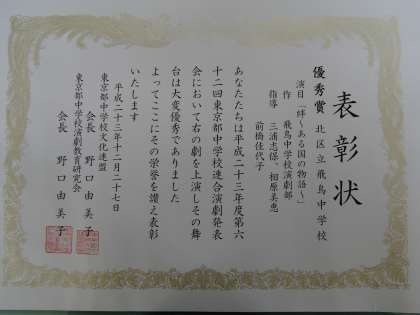 表彰状
優秀賞 北区立飛鳥中学校
演目「絆～ある国の物語～」
作 飛鳥中学校演劇部
指導 三浦志保、相原美恵
前橋佳代子
あなたたちは平成二十三年度第六
十二回東京都中学校連合演劇発表
会において右の劇を上演しその舞
台は大変優秀でありました
よってここにその栄誉を讃え表彰
いたします
平成二十三年十二月二十七日
東京都中学校文化連盟
会長 野口由美子
東京都中学校演劇教育研究会
会長 野口由美子